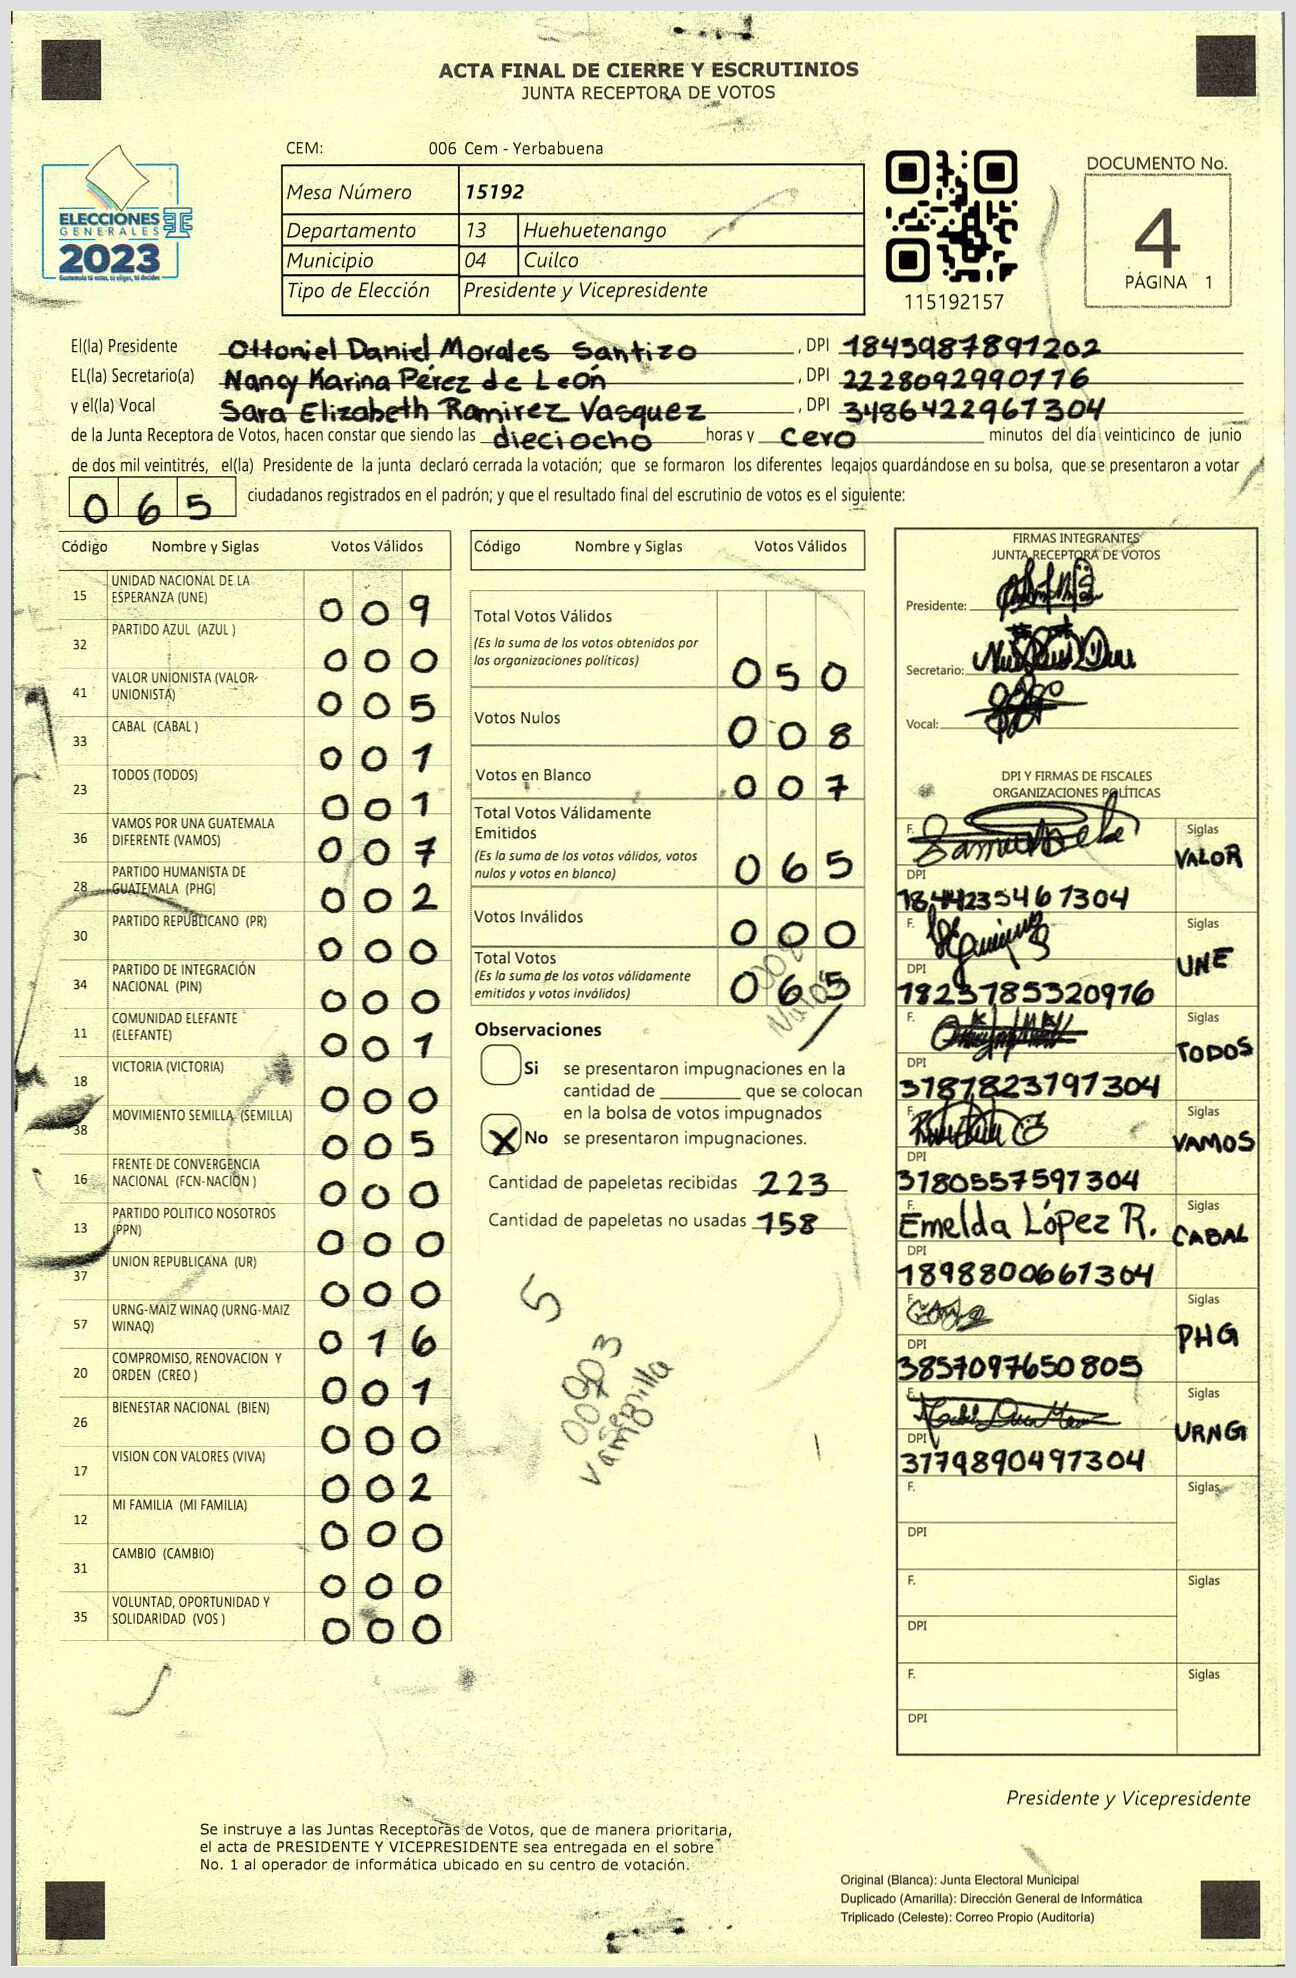 ACTA FINAL DE CIERRE Y ESCRUTINIOS
JUNTA RECEPTORA DE VOTOS
CEM: 006 Cem - Yerbabuena
Mesa Número 15192
Departamento 13 Huehuetenango
Municipio 04 Cuilco
Tipo de Elección Presidente y Vicepresidente
ELECCIONES
GENERALES
2023
Guatemala tú eres, tú eliges, tú decides
115192157
DOCUMENTO No.
4
PÁGINA 1
El(la) Presidente Ottoniel Daniel Morales Santizo, DPI 1843987891202
EL(la) Secretario(a) Nancy Karina Pérez de León, DPI 2228092990776
y el(la) Vocal Sara Elizabeth Ramirez Vasquez, DPI 3486422961304
de la Junta Receptora de Votos, hacen constar que siendo las dieciocho horas y cero minutos del día veinticinco de junio
de dos mil veintitrés, el(la) Presidente de la junta declaró cerrada la votación; que se formaron los diferentes legajos guardándose en su bolsa, que se presentaron a votar
065 ciudadanos registrados en el padrón; y que el resultado final del escrutinio de votos es el siguiente:
Código Nombre y Siglas Votos Válidos
15 UNIDAD NACIONAL DE LA
ESPERANZA (UNE) 009
32 PARTIDO AZUL (AZUL ) 000
41 VALOR UNIONISTA (VALOR-
UNIONISTA) 005
33 CABAL (CABAL ) 001
23 TODOS (TODOS) 001
36 VAMOS POR UNA GUATEMALA
DIFERENTE (VAMOS) 007
28 PARTIDO HUMANISTA DE
GUATEMALA (PHG) 002
30 PARTIDO REPUBLICANO (PR) 000
34 PARTIDO DE INTEGRACIÓN
NACIONAL (PIN) 000
11 COMUNIDAD ELEFANTE
(ELEFANTE) 001
18 VICTORIA (VICTORIA) 000
38 MOVIMIENTO SEMILLA (SEMILLA) 005
16 FRENTE DE CONVERGENCIA
NACIONAL (FCN-NACION ) 000
13 PARTIDO POLITICO NOSOTROS
(PPN) 000
37 UNION REPUBLICANA (UR) 000
57 URNG-MAIZ WINAQ (URNG-MAIZ
WINAQ) 016
20 COMPROMISO, RENOVACION Y
ORDEN (CREO ) 001
26 BIENESTAR NACIONAL (BIEN) 000
17 VISION CON VALORES (VIVA) 002
12 MI FAMILIA (MI FAMILIA) 000
31 CAMBIO (CAMBIO) 000
35 VOLUNTAD, OPORTUNIDAD Y
SOLIDARIDAD (VOS ) 000
Código Nombre y Siglas Votos Válidos
Total Votos Válidos
(Es la suma de los votos obtenidos por
las organizaciones políticas) 050
Votos Nulos 008
Votos en Blanco 007
Total Votos Válidamente
Emitidos
(Es la suma de los votos válidos, votos
nulos y votos en blanco) 065
Votos Inválidos 000
Total Votos
(Es la suma de los votos válidamente
emitidos y votos inválidos) 065
008
Nulos
Observaciones
Si se presentaron impugnaciones en la
cantidad de ________ que se colocan
en la bolsa de votos impugnados
X No se presentaron impugnaciones.
Cantidad de papeletas recibidas 223
Cantidad de papeletas no usadas 158
5
003
Semilla
007
Vamo
FIRMAS INTEGRANTES
JUNTA RECEPTORA DE VOTOS
Presidente:
Secretario:
Vocal:
DPI Y FIRMAS DE FISCALES
ORGANIZACIONES POLÍTICAS
F. Siglas VALOR
DPI 1844235461304
F. Siglas UNE
DPI 1823785320976
F. Siglas TODOS
DPI 3787823791304
F. Siglas VAMOS
DPI 3780557591304
F. Emelda López R. Siglas CABAL
DPI 1898800661304
F. Siglas PHG
DPI 3857097650805
F. Siglas URNG
DPI 3779890491304
F. Siglas
DPI
F. Siglas
DPI
F. Siglas
DPI
Presidente y Vicepresidente
Se instruye a las Juntas Receptoras de Votos, que de manera prioritaria,
el acta de PRESIDENTE Y VICEPRESIDENTE sea entregada en el sobre
No. 1 al operador de informática ubicado en su centro de votación.
Original (Blanca): Junta Electoral Municipal
Duplicado (Amarilla): Dirección General de Informática
Triplicado (Celeste): Correo Propio (Auditoría)